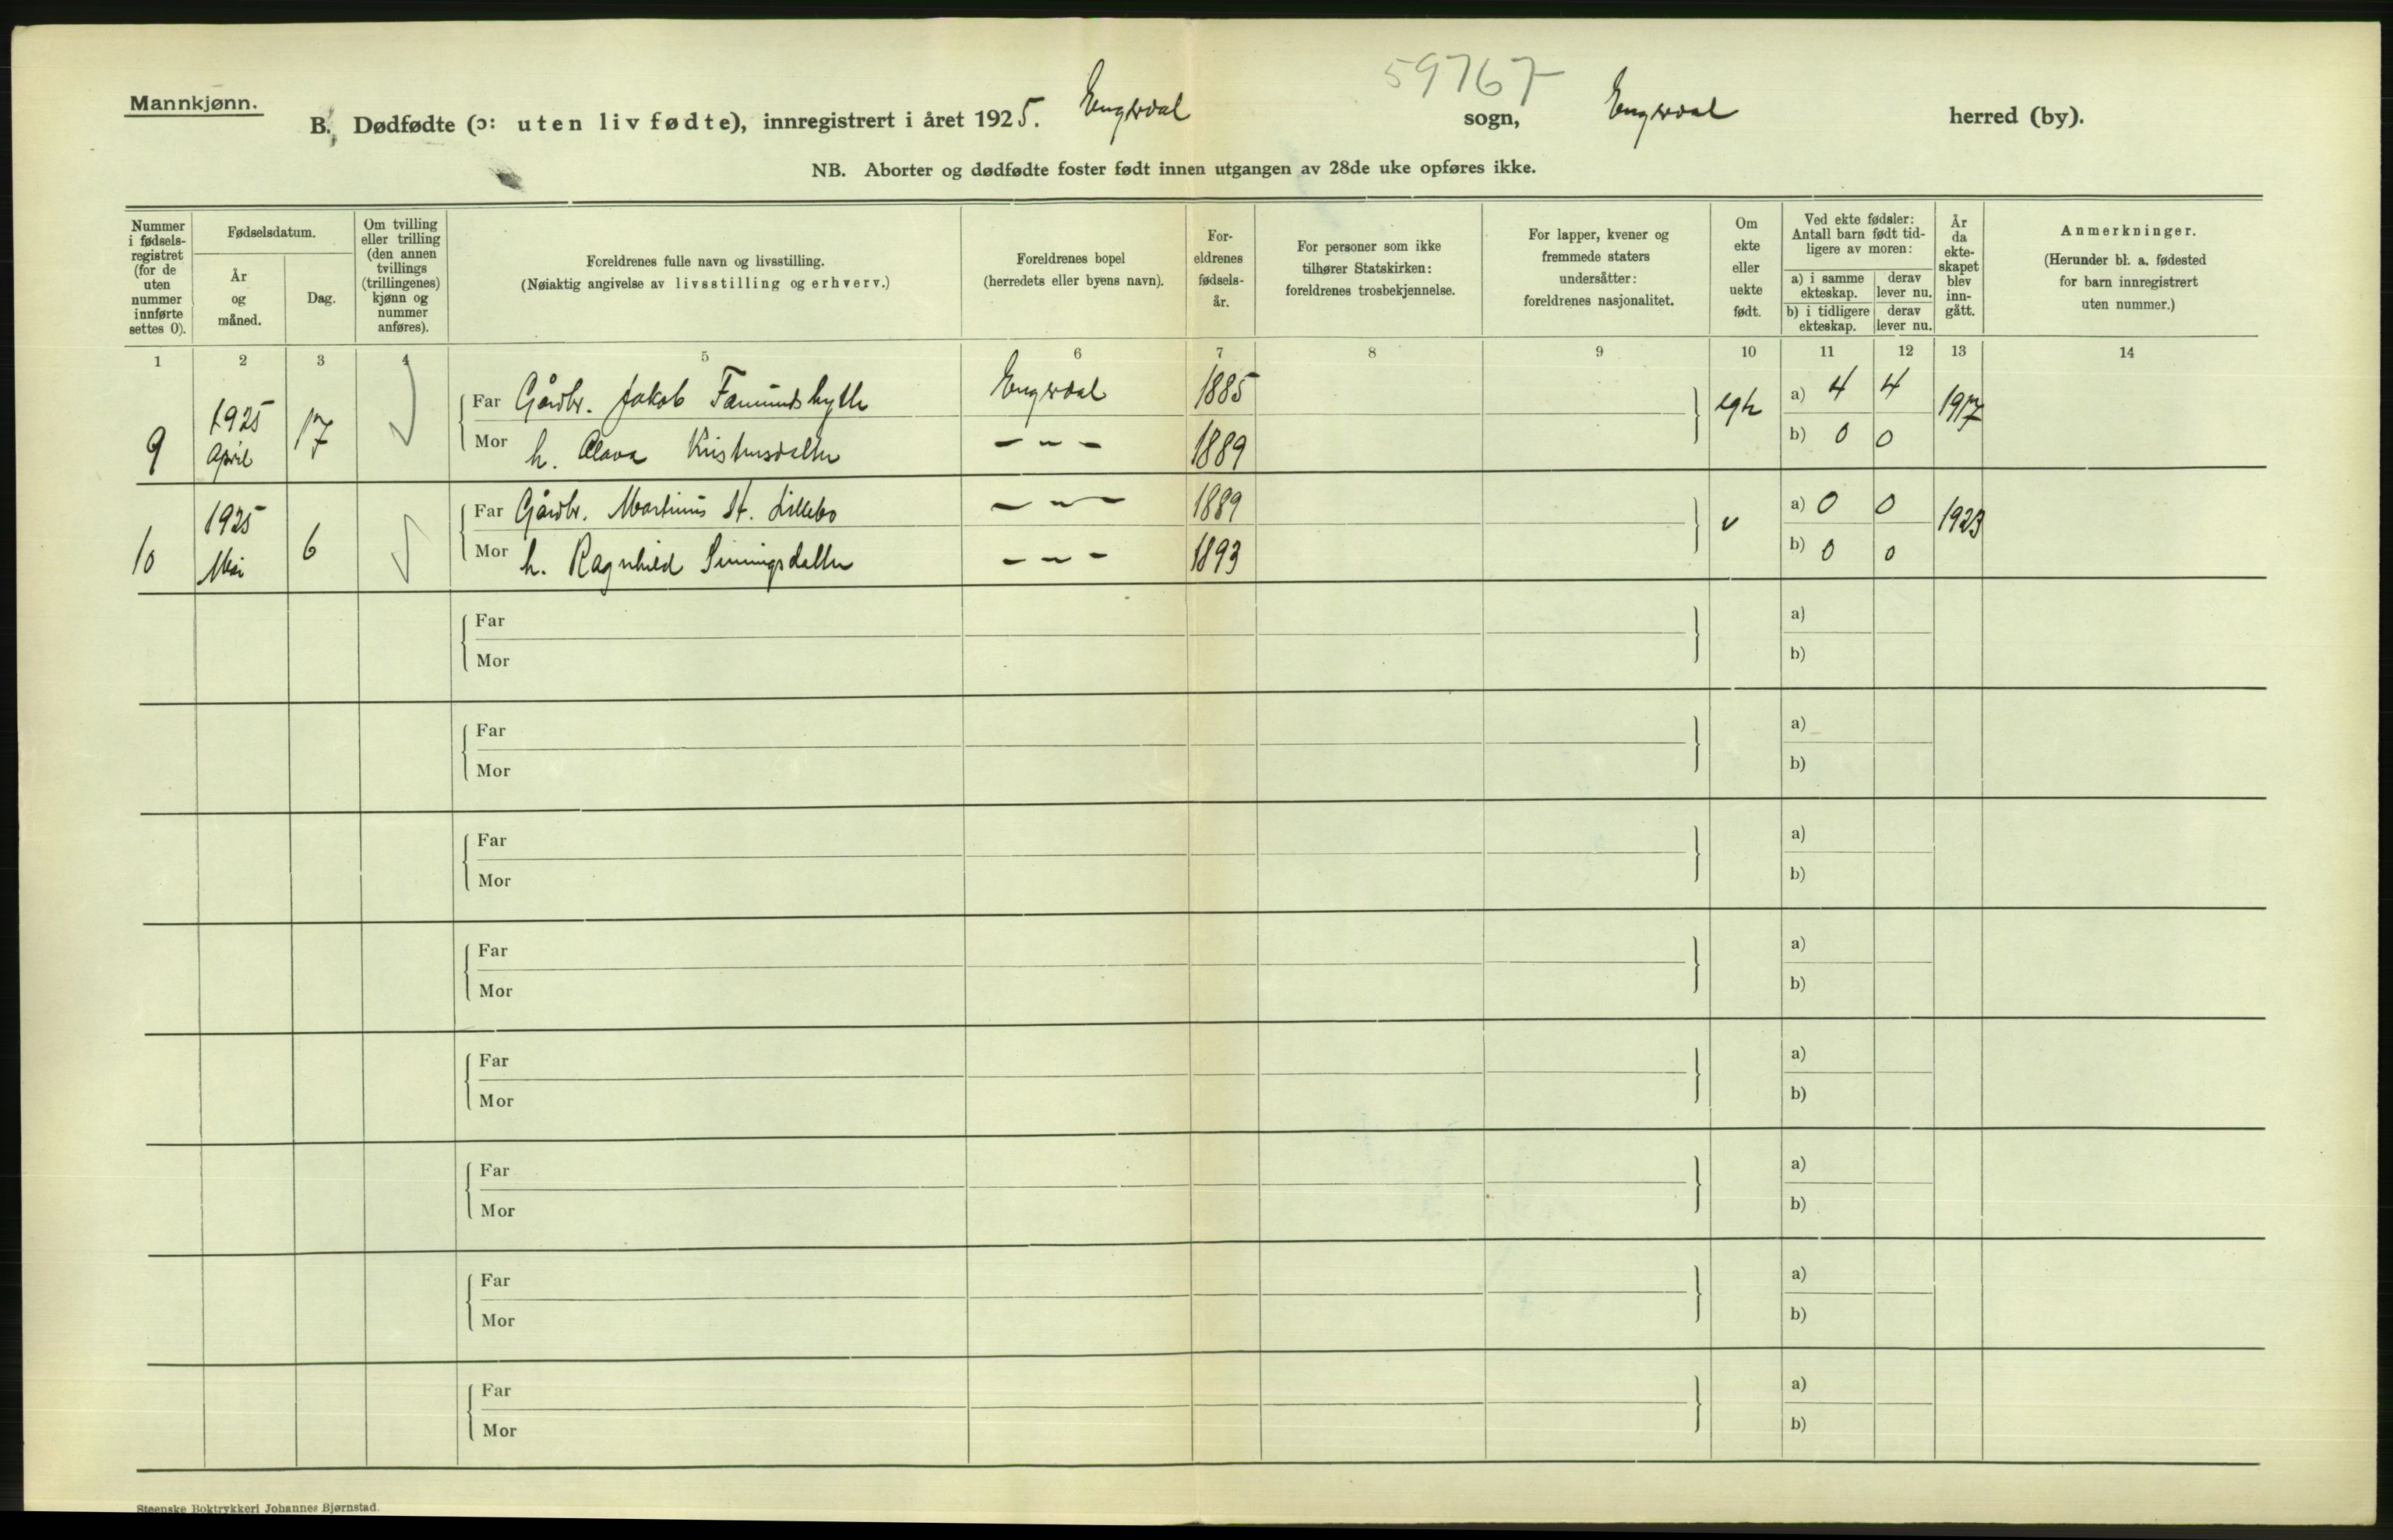 59767
Mannkjønn.
B. Dødfødte (ɔ: uten liv fødte), innregistrert i året 1925. Engerdal sogn, Engerdal herred (by).
NB. Aborter og dødfødte foster født innen utgangen av 28de uke opføres ikke.
Nummer i fødsels-registret (for de uten nummer innførte settes 0).
Fødselsdatum.
År og måned.
Dag.
Om tvilling eller trilling (den annen tvillings (trillingenes) kjønn og nummer anføres).
Foreldrenes fulle navn og livsstilling.
(Nøiaktig angivelse av livsstilling og erhverv.)
Foreldrenes bopel
(herredets eller byens navn).
For-eldrenes fødsels-år.
For personer som ikke tilhører Statskirken: foreldrenes trosbekjennelse.
For lapper, kvener og fremmede staters undersåtter: foreldrenes nasjonalitet.
Om ekte eller uekte født.
Ved ekte fødsler: Antall barn født tid-ligere av moren:
a) i samme ekteskap.
derav lever nu.
b) i tidligere ekteskap.
derav lever nu.
År da ekte-skapet blev inn-gått.
Anmerkninger.
(Herunder bl. a. fødested for barn innregistrert uten nummer.)
1 2 3 4 5 6 7 8 9 10 11 12 13 14
9 1925 April 17 Far Gårdbr. Jakob Femundshytte Engerdal 1885 egte a) 4 4 1917
Mor h. Olava – " – 1889 b) 0 0
10 1925 Mai 6 Far Gårdbr. Martinus H. Lillebo – " – 1889 v a) 0 0 1923
Mor h. Ragnhild – " – 1893 b) 0 0
Far a)
Mor b)
Far a)
Mor b)
Far a)
Mor b)
Far a)
Mor b)
Far a)
Mor b)
Far a)
Mor b)
Far a)
Mor b)
Far a)
Mor b)
Steenske Boktrykkeri Johannes Bjørnstad.